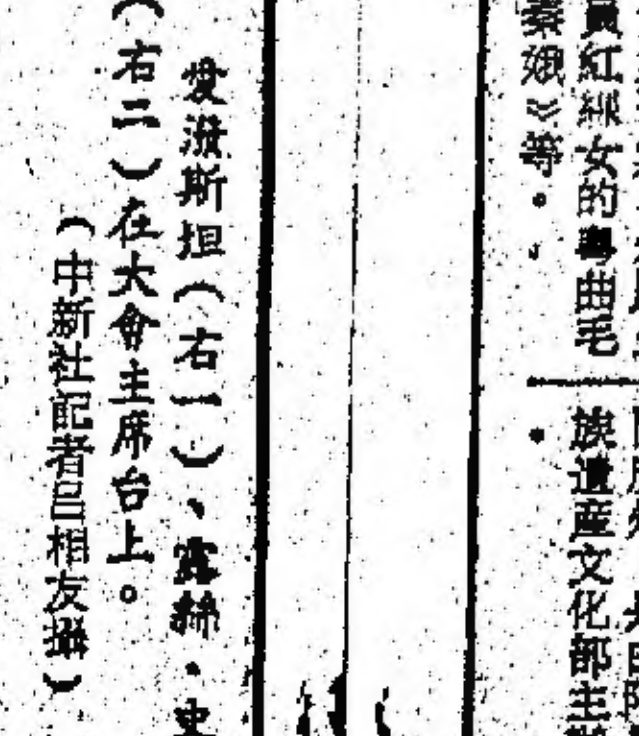 員紅線女的粵曲毛
秦娥》等。
族遺産文化部主辦
愛潑斯坦(右一)、露絲·史
(右二)在大會主席台上。
(中新社記者呂相友攝)